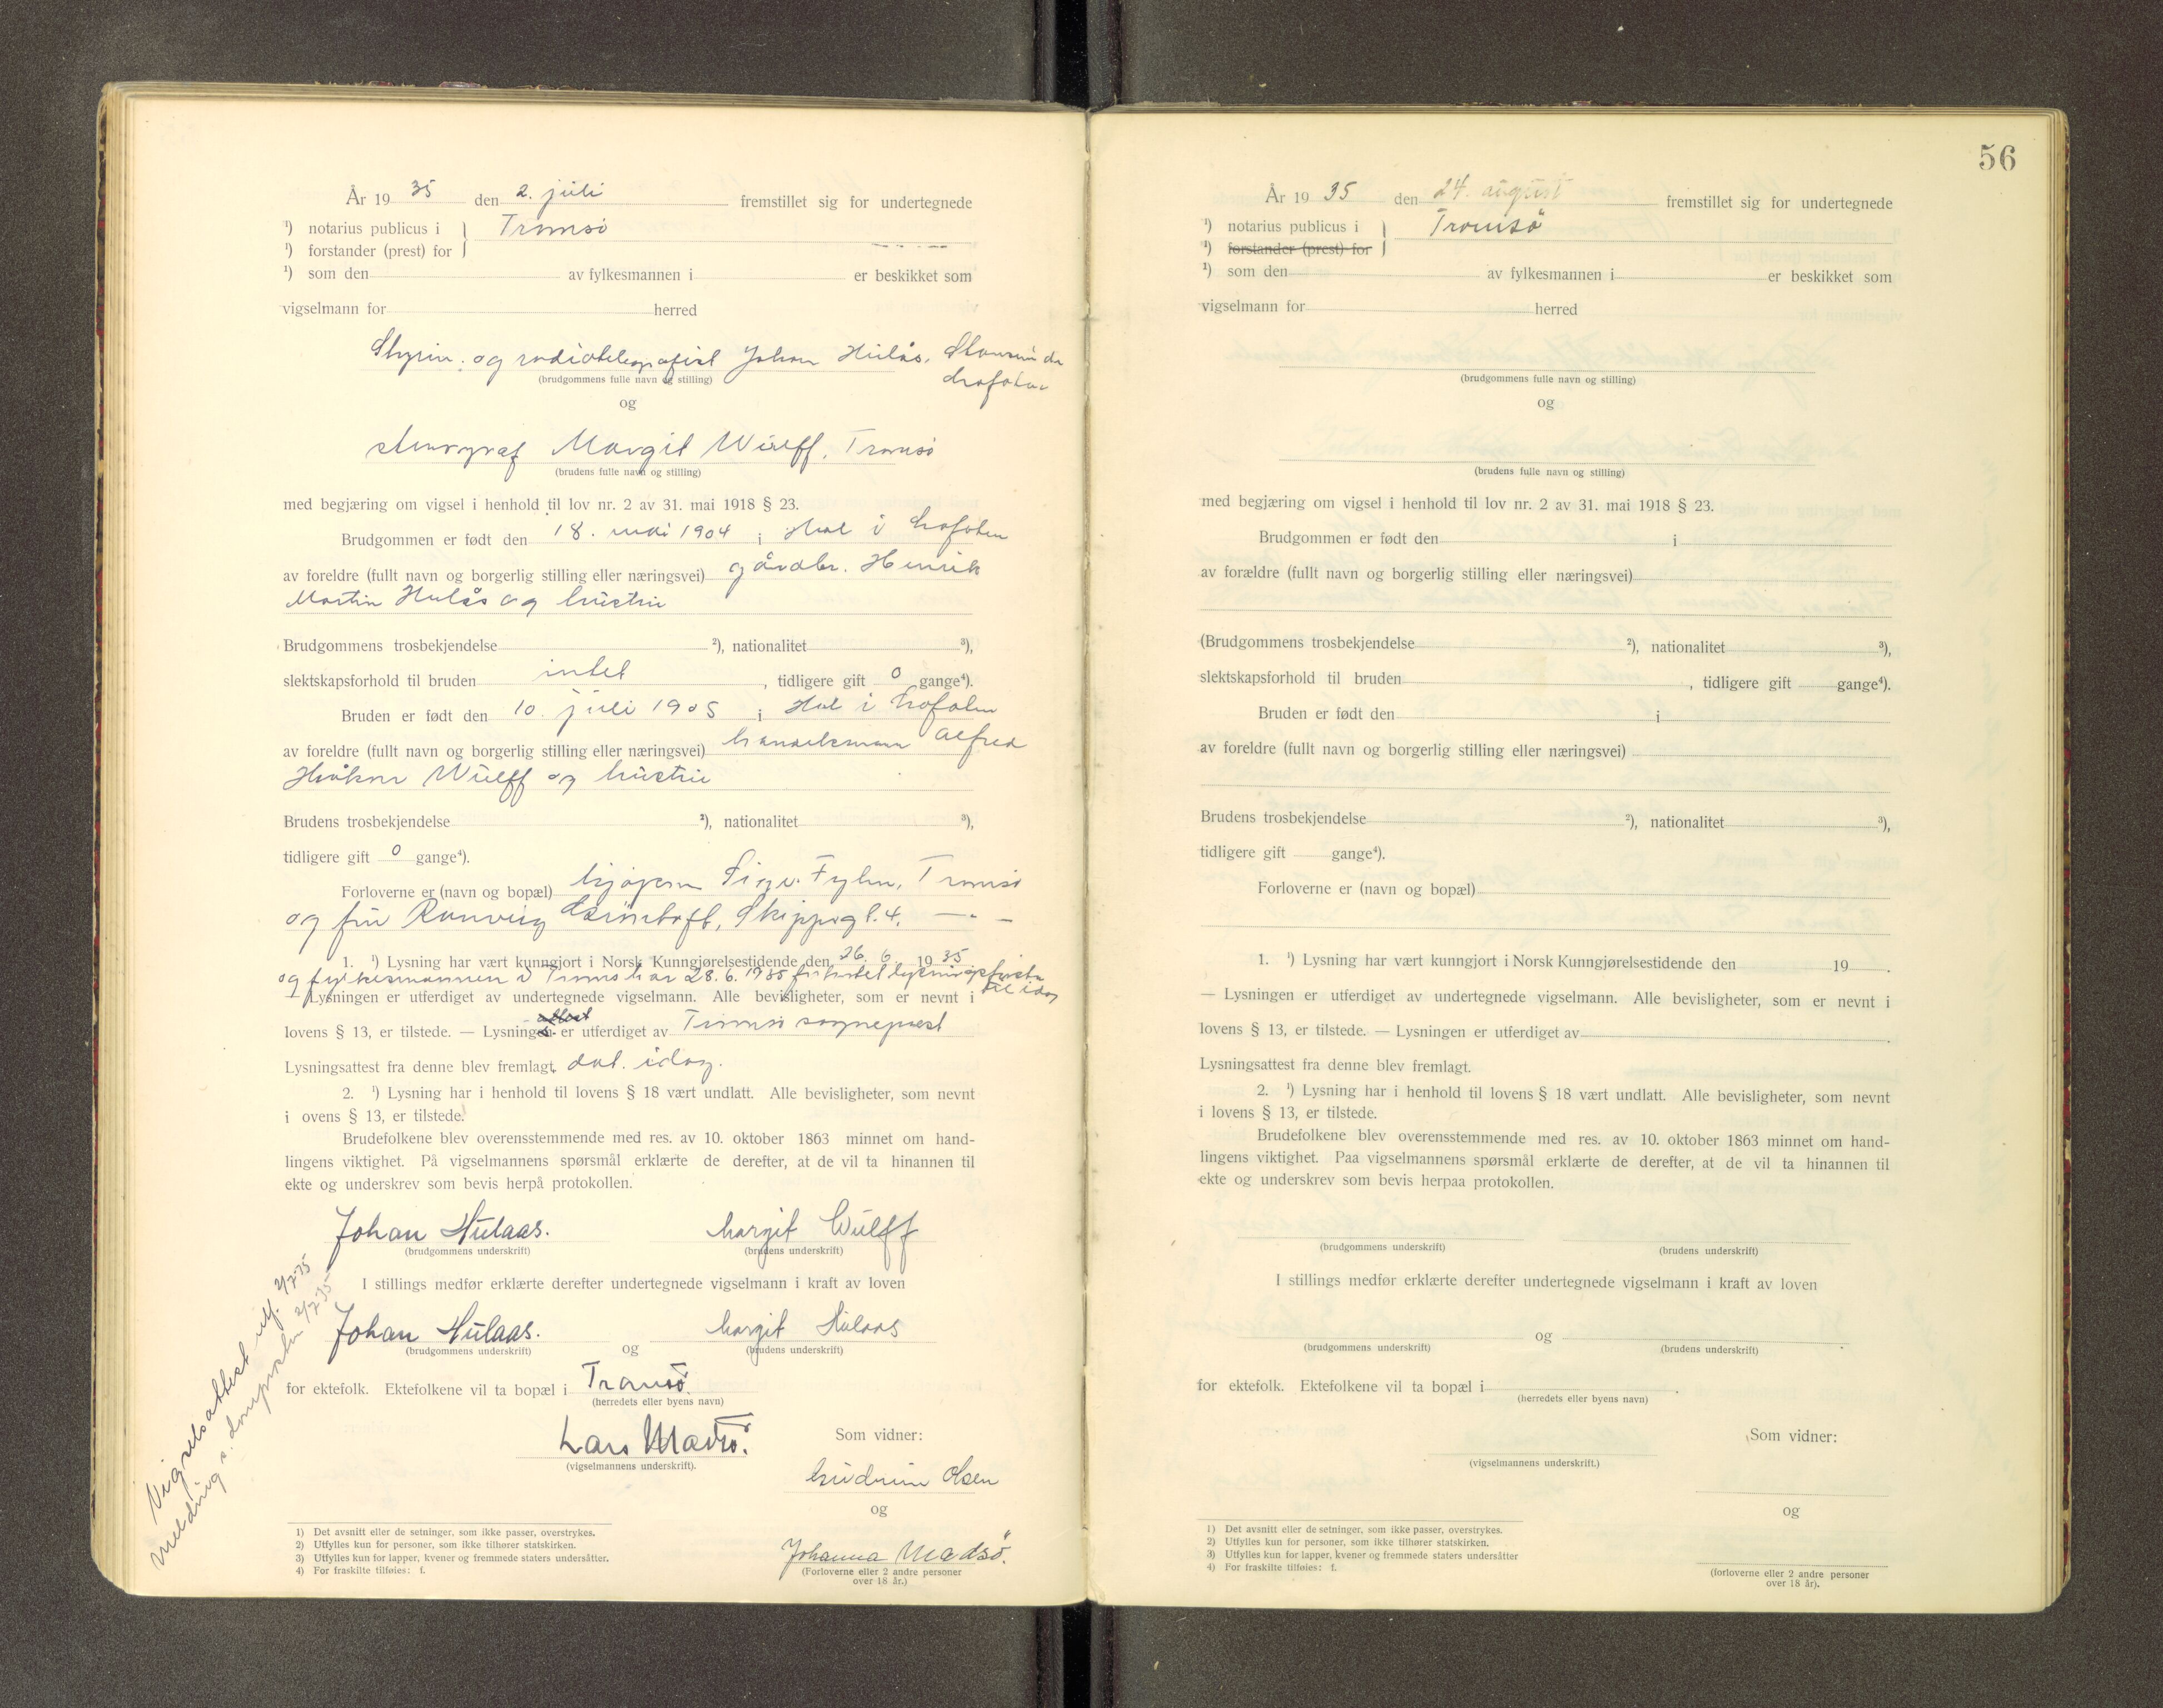 År 19 35 den 2. juli fremstillet sig for undertegnede
¹) notarius publicus i } Tromsö
¹) forstander (prest) for
¹) som den av fylkesmannen i er beskikket som
vigselmann for herred
Styrm. og radiotelegrafist Johan Hulås, Stamsund
Lofoten
(brudgommens fulle navn og stilling)
og
Margit Wulff, Tromsö
(brudens fulle navn og stilling)
med begjæring om vigsel i henhold til lov nr. 2 av 31. mai 1918 § 23.
Brudgommen er født den 18. mai 1904 i Hol i Lofoten
av foreldre (fullt navn og borgerlig stilling eller næringsvei) gårdbr. Henrik
Martin Hulås og hustru
Brudgommens trosbekjendelse ²), nationalitet ³),
slektskapsforhold til bruden intet, tidligere gift 0 gange⁴).
Bruden er født den 10. juli 1905 i Hol i Lofoten
av foreldre (fullt navn og borgerlig stilling eller næringsvei) handelsmann Alfred
Håkon Wulff og hustru
Brudens trosbekjendelse ²), nationalitet ³),
tidligere gift 0 gange⁴).
Forloverne er (navn og bopæl) Tromsö
og fru Ranveig Skipperg t. 4. — " —
1. ¹) Lysning har vært kunngjort i Norsk Kunngjørelsestidende den 26. 6 1935
og fylkesmannen i Troms har 28. 6. 1935 lysningsfristen
til idag
— Lysningen er utferdiget av undertegnede vigselmann. Alle bevisligheter, som er nevnt i
lovens § 13, er tilstede. — Lysningen er utferdiget av Tromsö sogneprest
Lysningsattest fra denne blev fremlagt, dat. idag.
2. ¹) Lysning har i henhold til lovens § 18 vært undlatt. Alle bevisligheter, som nevnt
i ovens § 13, er tilstede.
Brudefolkene blev overensstemmende med res. av 10. oktober 1863 minnet om hand-
lingens viktighet. På vigselmannens spørsmål erklærte de derefter, at de vil ta hinannen til
ekte og underskrev som bevis herpå protokollen.
Johan Hulaas. Margit Wulff
(brudgommens underskrift) (brudens underskrift)
I stillings medfør erklærte derefter undertegnede vigselmann i kraft av loven
Johan Hulaas. og Margit Hulaas
(brudgommens underskrift) (brudens underskrift)
for ektefolk. Ektefolkene vil ta bopæl i Tromsö.
(herredets eller byens navn)
Lars Madsö.
(vigselmannens underskrift).
Som vidner:
Gudrun Olsen
og
Johanna Madsö.
(Forloverne eller 2 andre personer
over 18 år.)
1) Det avsnitt eller de setninger, som ikke passer, overstrykes.
2) Utfylles kun for personer, som ikke tilhører statskirken.
3) Utfylles kun for lapper, kvener og fremmede staters undersåtter.
4) For fraskilte tilføies: f.
Vigselsattest utf. 2/7 35
melding s. domprosten 2/7 35
56
År 19 35 den 24. august fremstillet sig for undertegnede
¹) notarius publicus i } Tromsö
¹) forstander (prest) for
¹) som den av fylkesmannen i er beskikket som
vigselmann for herred
(brudgommens fulle navn og stilling)
og
(brudens fulle navn og stilling)
med begjæring om vigsel i henhold til lov nr. 2 av 31. mai 1918 § 23.
Brudgommen er født den i
av forældre (fullt navn og borgerlig stilling eller næringsvei)
(Brudgommens trosbekjendelse ²), nationalitet ³),
slektskapsforhold til bruden , tidligere gift gange⁴).
Bruden er født den i
av foreldre (fullt navn og borgerlig stilling eller næringsvei)
Brudens trosbekjendelse ²), nationalitet ³),
tidligere gift gange⁴).
Forloverne er (navn og bopæl)
1. ¹) Lysning har vært kunngjort i Norsk Kunngjørelsestidende den 19 .
— Lysningen er utferdiget av undertegnede vigselmann. Alle bevisligheter, som er nevnt i
lovens § 13, er tilstede. — Lysningen er utferdiget av .
Lysningsattest fra denne blev fremlagt.
2. ¹) Lysning har i henhold til lovens § 18 vært undlatt. Alle bevisligheter, som nevnt
i lovens § 13, er tilstede.
Brudefolkene blev overensstemmende med res. av 10. oktober 1863 minnet om hand-
lingens viktighet. Paa vigselmannens spørsmål erklærte de derefter, at de vil ta hinannen til
ekte og underskrev som bevis herpaa protokollen.
(brudgommens underskrift) (brudens underskrift)
I stillings medfør erklærte derefter undertegnede vigselmann i kraft av loven
og
(brudgommens underskrift) (brudens underskrift)
for ektefolk. Ektefolkene vil ta bopæl i .
(herredets eller byens navn)
Som vidner:
(vigselmannens underskrift.)
og
(forloverne eller 2 andre personer
over 18 år).
1) Det avsnitt eller de setninger, som ikke passer, overstrykes.
2) Utfylles kun for personer, som ikke tilhører statskirken.
3) Utfylles kun for lapper, kvener og fremmede staters undersåtter
4) For fraskilte tilføies: f.